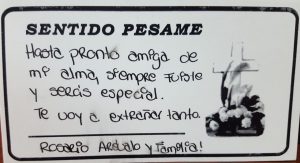 SENTIDO PESAME
Hasta pronto amiga de
mi alma, siempre fuiste
y serás especial.
Te voy a extrañar tanto
Rosario Arévalo y Familia!